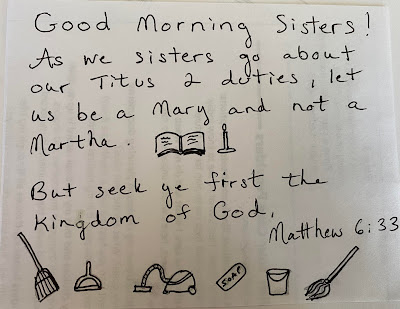 Good Morning Sisters!
As we sisters go about
our Titus 2 duties, let
us be a Mary and not a
Martha.
But seek ye first the
Kingdom of God.
Matthew 6:33
SOAP